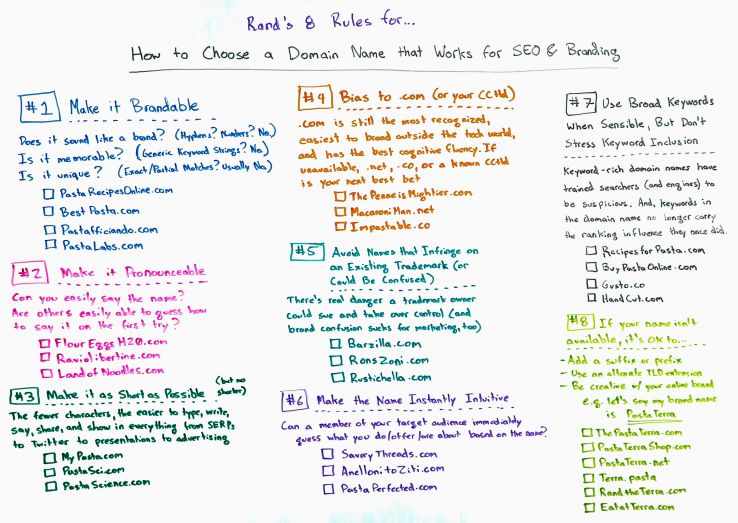 Rand's 8 Rules for...
How to Choose a Domain Name that Works for SEO & Branding
#1 Make it Brandable
Does it sound like a brand? (Hyphens? Numbers? No.)
Is it memorable? (Generic Keyword Strings? No.)
Is it unique? (Exact/Partial Matches? Usually No)
PastaRecipesOnline.com
BestPasta.com
Pastafficiando.com
PastaLabs.com
#2 Make it Pronounceable
Can you easily say the name?
Are others easily able to guess how
to say it on the first try?
FlourEggsH20.com
Raviolibertine.com
LandofNoodles.com
#3 Make it as Short as Possible (but no
shorter)
The fewer characters, the easier to type, write,
say, share, and show in everything from SERPs
to Twitter to presentations to advertising
MyPasta.com
PastaSci.com
PastaScience.com
#4 Bias to .com (or your CCtld)
.com is still the most recognized,
easiest to brand outside the tech world,
and has the best cognitive fluency. If
unavailable, .net, .co, or a known CCtld
is your next best bet
ThePenneisMightier.com
MacaroniMan.net
Impastable.co
#5 Avoid Names that Infringe on
an Existing Trademark (or
Could Be Confused)
There's real danger a trademark owner
could sue and take over control (and
brand confusion sucks for marketing, too)
Barzilla.com
RonsZoni.com
Rustichella.com
#6 Make the Name Instantly Intuitive
Can a member of your target audience immediately
guess what you do/offer/are about based on the name?
SavoryThreads.com
AnellonitoZiti.com
PastaPerfected.com
#7 Use Broad Keywords
When Sensible, But Don't
Stress Keyword Inclusion
Keyword-rich domain names have
trained searchers (and engines) to
be suspicious. And, keywords in
the domain name no longer carry
the ranking influence they once did.
RecipesforPasta.com
BuyPastaOnline.com
Gusto.co
HandCut.com
#8 If your name isn't
available, it's OK to...
- Add a suffix or prefix
- Use an alternate TLD extension
- Be creative w/ your online brand
e.g. let's say my brand name
is PastaTerra
ThePastaTerra.com
PastaTerraShop.com
PastaTerra.net
Terra.pasta
RandtheTerra.com
EatatTerra.com